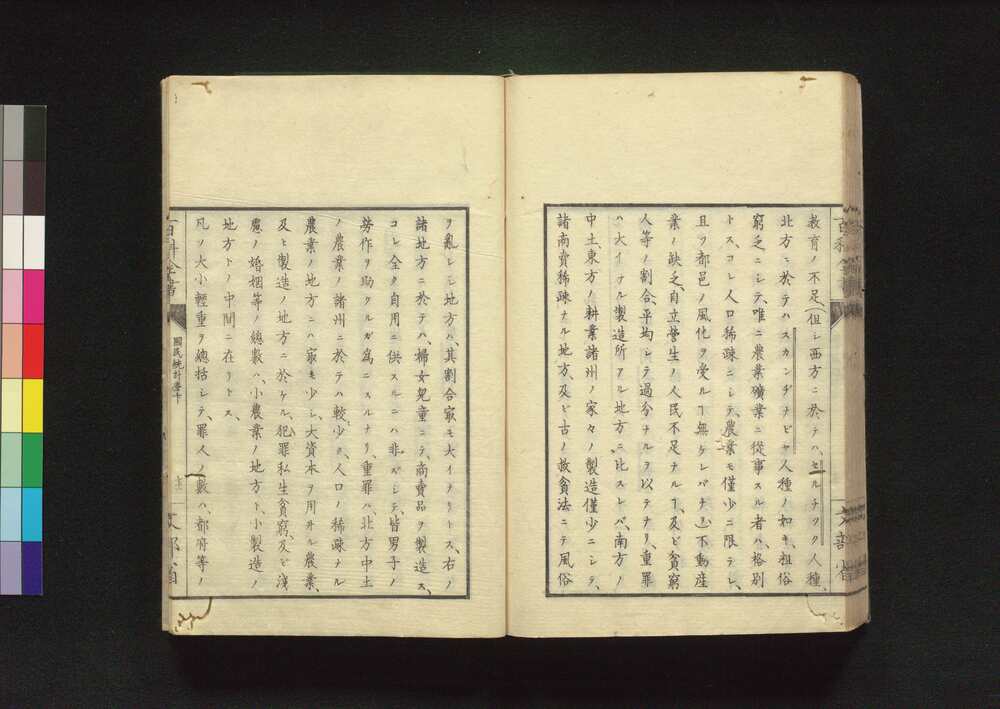 教育ノ不足、(但シ西方ニ於テハ、セルチック人種、
北方ニ於テハスカンヂナビヤ人種ノ如キ、粗俗
窮乏ニシテ、唯ニ農業礦業ニ從事スル者ハ、格別
トス、コレ人口稀疎ニシテ、農業モ僅少ニ限レレ、
且ツ都邑ノ風化ヲ受ルヿ無ケレバナリ)不動産
業ノ缺乏、自立營生ノ人民不足ナルヿ、及ビ貧窮
人等ノ割合、平均シテ過分ナルヲ以テナリ、重罪
ハ大イナル製造所アル地方ニ比スレバ、南方ノ
中土東方ノ耕業諸州ノ家々ノ製造僅少ニシテ、
諸商賣稀疎ナル地方、及ビ古ノ救貧法ニテ風俗
ヲ亂レシ地方ハ、其割合最モ大イナリトス、右ノ
諸地方ニ於テハ、婦女兒童ニテ、商賣品ヲ製造ス、
コレ全ク自用ニ供スルニハ非ズシテ、皆男子ノ
勞作ヲ助クルガ爲ニスルナリ、重罪ハ、北方中土
ノ農業ノ諸州ニ於テハ較少ク、人口ノ稀疎ナル
農業ノ地方ニハ最モ少シ、大資本ヲ用井ル農業、
及ヒ製造ノ地方ニ於ケル、犯罪私生貧窮、及ビ淺
慮ノ婚姻等ノ總數ハ、小農業ノ地方ト、小製造ノ
地方トノ中間ニ在リトス、
凡ソ大小輕重ヲ總括シテ、罪人ノ數ハ、都府等ノ
百科全書
國民統計學下
文部省